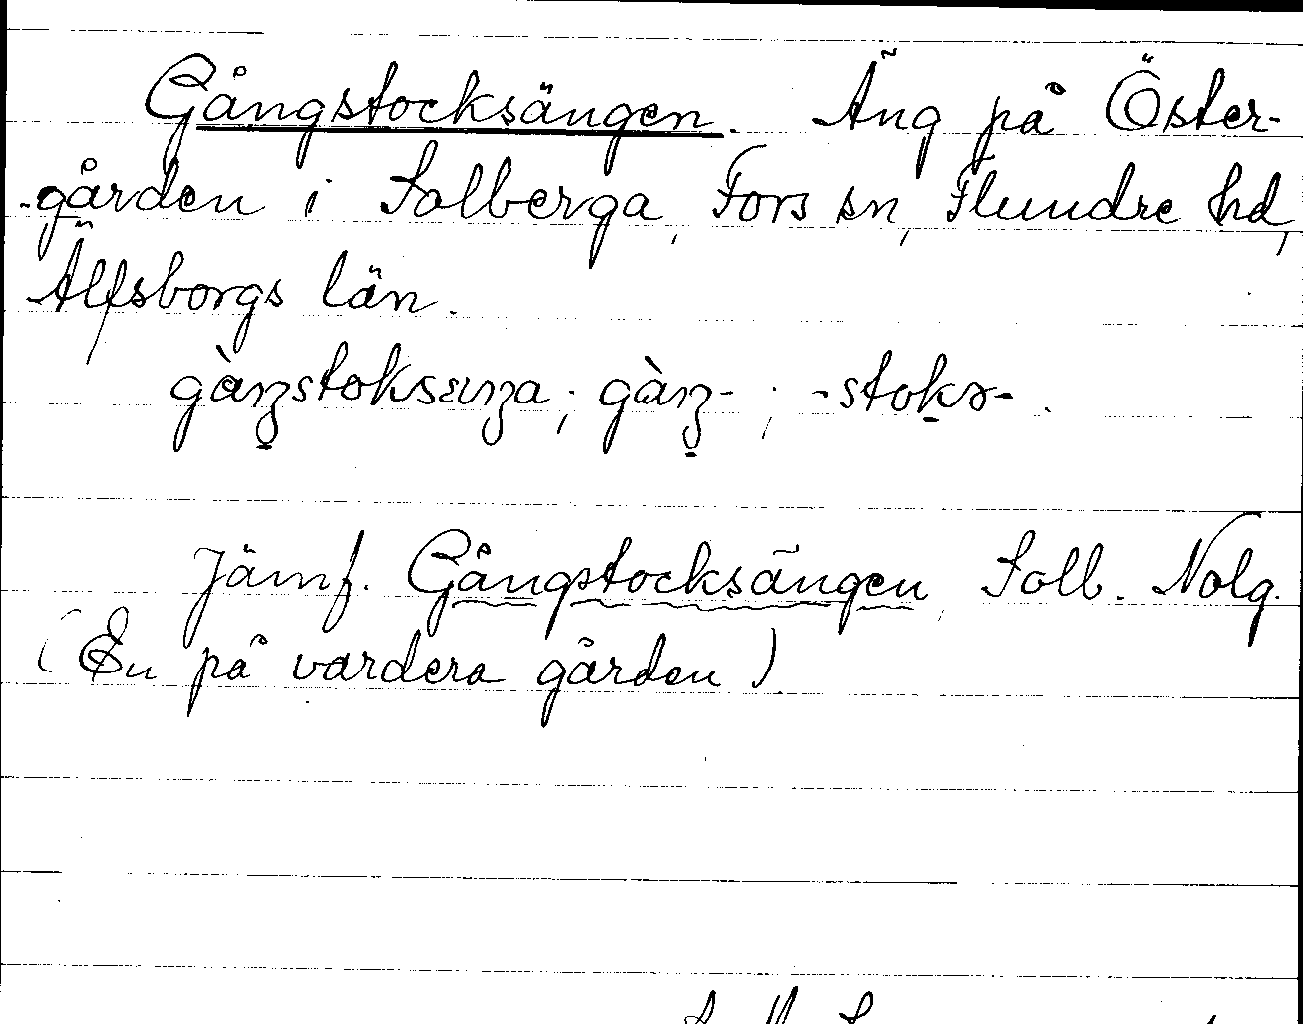 Gångstocksängen. Äng på Öster-
gården i Solberga, Fors sn, Flundre hd,
Älfsborgs län.
gàŋstoksæŋa; gàŋ-; -stoks-.
Jämf. Gångstocksängen, Solb. Nolg.
(En på vardera gården)